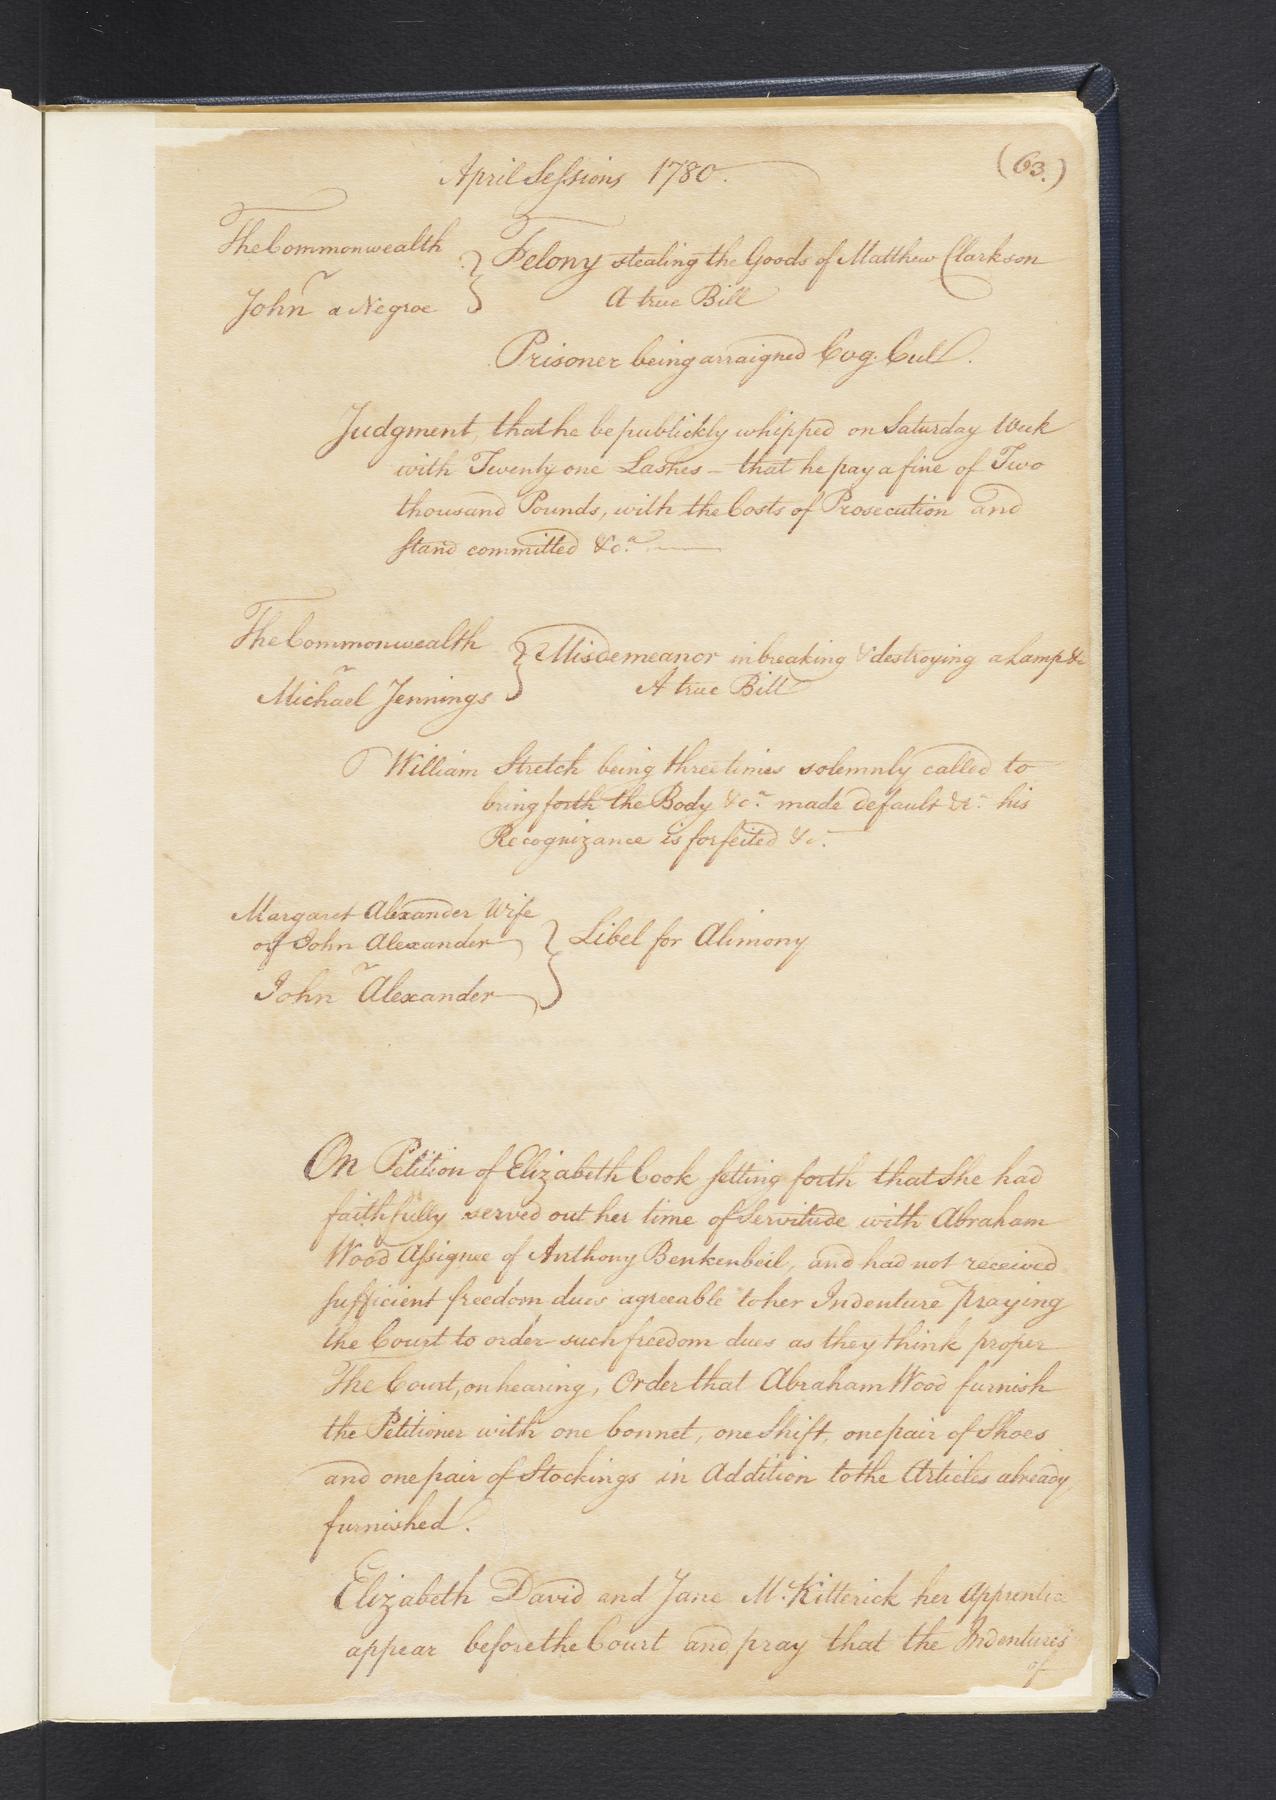 April Sessions 1780.
(63.)
The Commonwealth
v
John a Negroe
Felony stealing the Goods of Matthew Clarkson
A true Bill
Prisoner being arraigned Cog. Cul.
Judgment, that he be publickly whipped on Saturday Week
with Twenty one Lashes - that he pay a fine of Two
thousand Pounds, with the Costs of Prosecution and
stand committed &c.a
The Commonwealth
v
Michael Jennings
Misdemeanor in breaking & destroying a Lamp &c
A true Bill
William Stretch being three times solemnly called to
bring forth the Body &c. made default &c. his
Recognizance is forfeited &c.
Margaret Alexander Wife
of John Alexander
v
John Alexander
Libel for Alimony
On Petition of Elizabeth Cook setting forth that She had
faithfully served out her time of Servitude with Abraham
Wood Assignee of Anthony Benkenbeil, and had not received
sufficient freedom dues agreeable to her Indenture Praying
the Court to order such freedom dues as they think proper
The Court, on hearing, Order that Abraham Wood furnish
the Petitioner with one bonnet, one Shift, one pair of Shoes
and one pair of Stockings in Addition to the Articles already
furnished.
Elizabeth David and Jane Mc.Kitterick her Apprentice
appear before the Court and pray that the Indentures
of